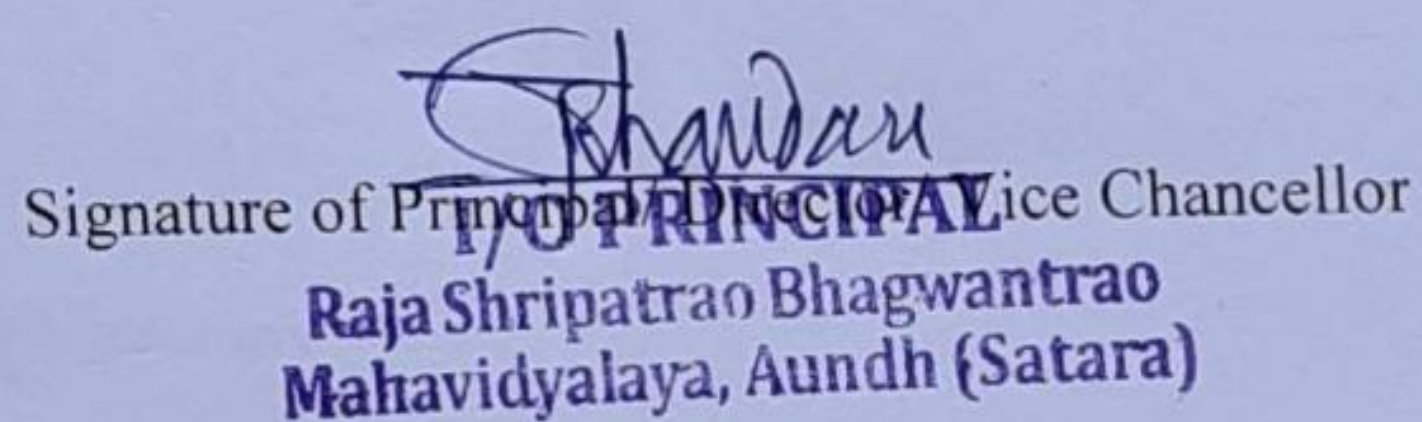 Signature of Principal/ Director/ Vice Chancellor
I/C PRINCIPAL
Raja Shripatrao Bhagwantrao
Mahavidyalaya, Aundh (Satara)